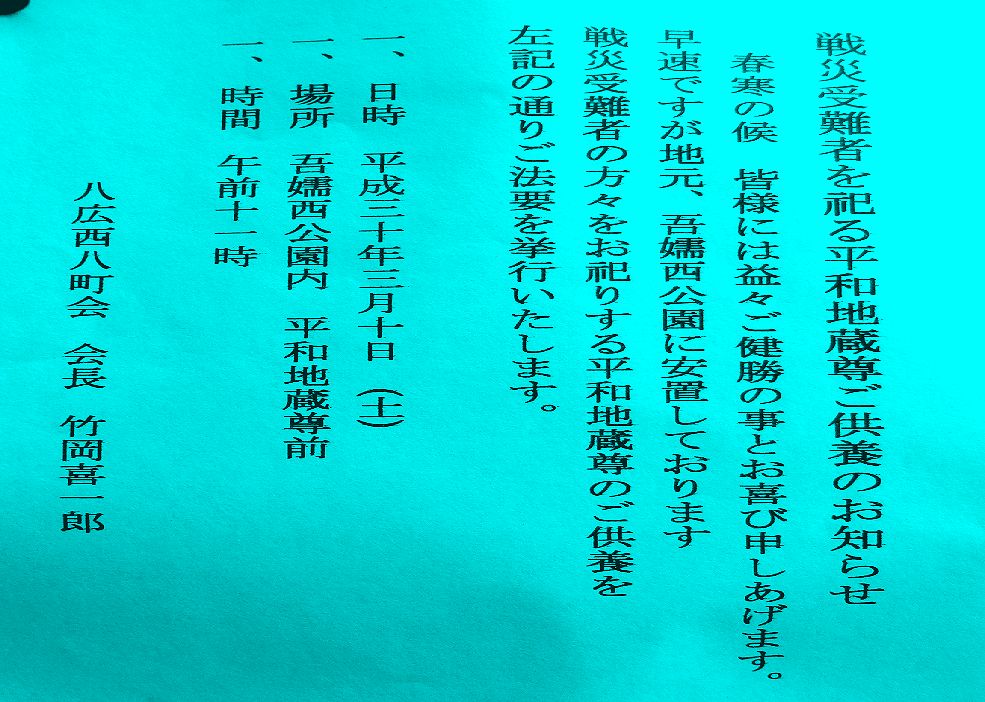 戦災受難者を祀る平和地蔵尊ご供養のお知らせ
春寒の候　皆様には益々ご健勝の事とお喜び申しあげます。
早速ですが地元、吾嬬西公園に安置しております
戦災受難者の方々をお祀りする平和地蔵尊のご供養を
左記の通りご法要を挙行いたします。
一、日時　平成三十年三月十日（土）
一、場所　吾嬬西公園内　平和地蔵尊前
一、時間　午前十一時
八広西八町会　会長　竹岡喜一郎